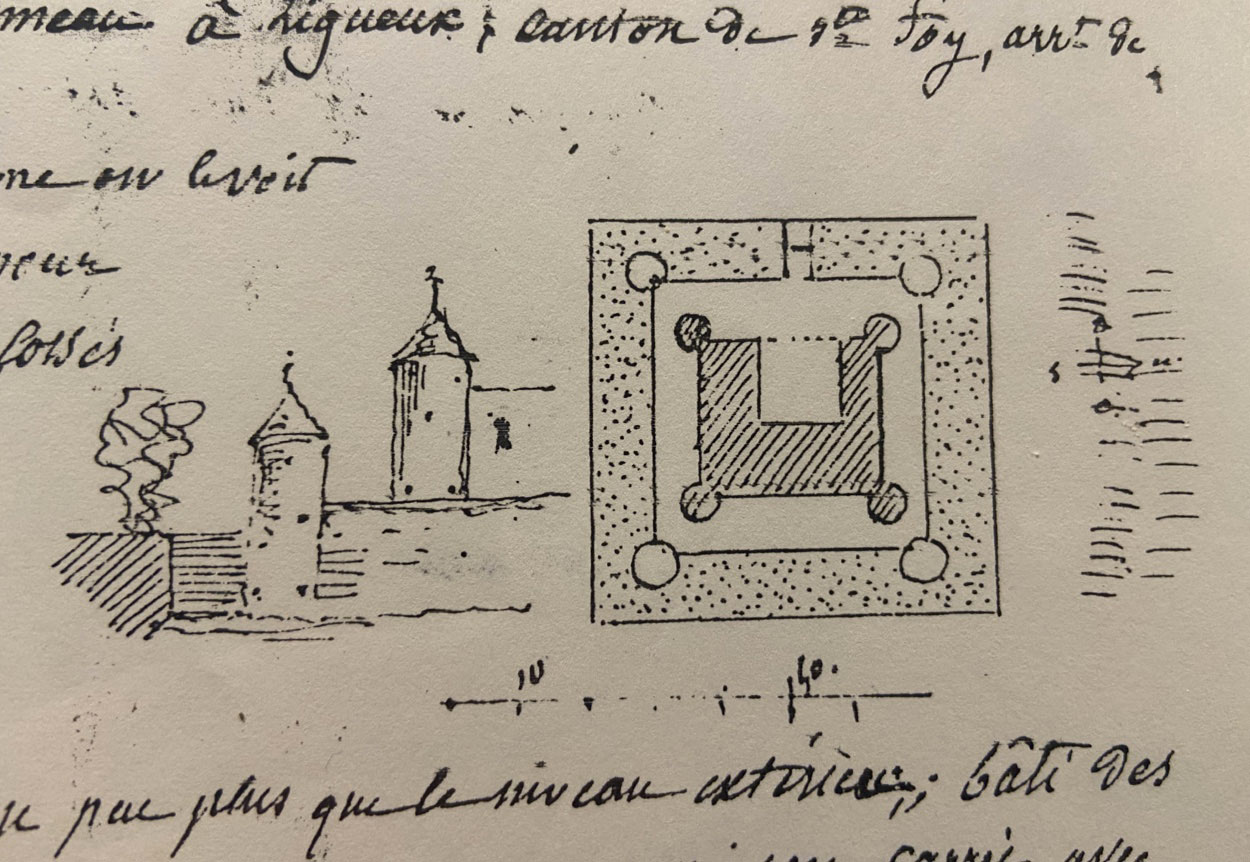 à Ligueux ; canton de Ste Foy, arrt de
on le voit
fossés
10
40.
S
peu plus que le niveau extérieur ; bâti des
carré avec